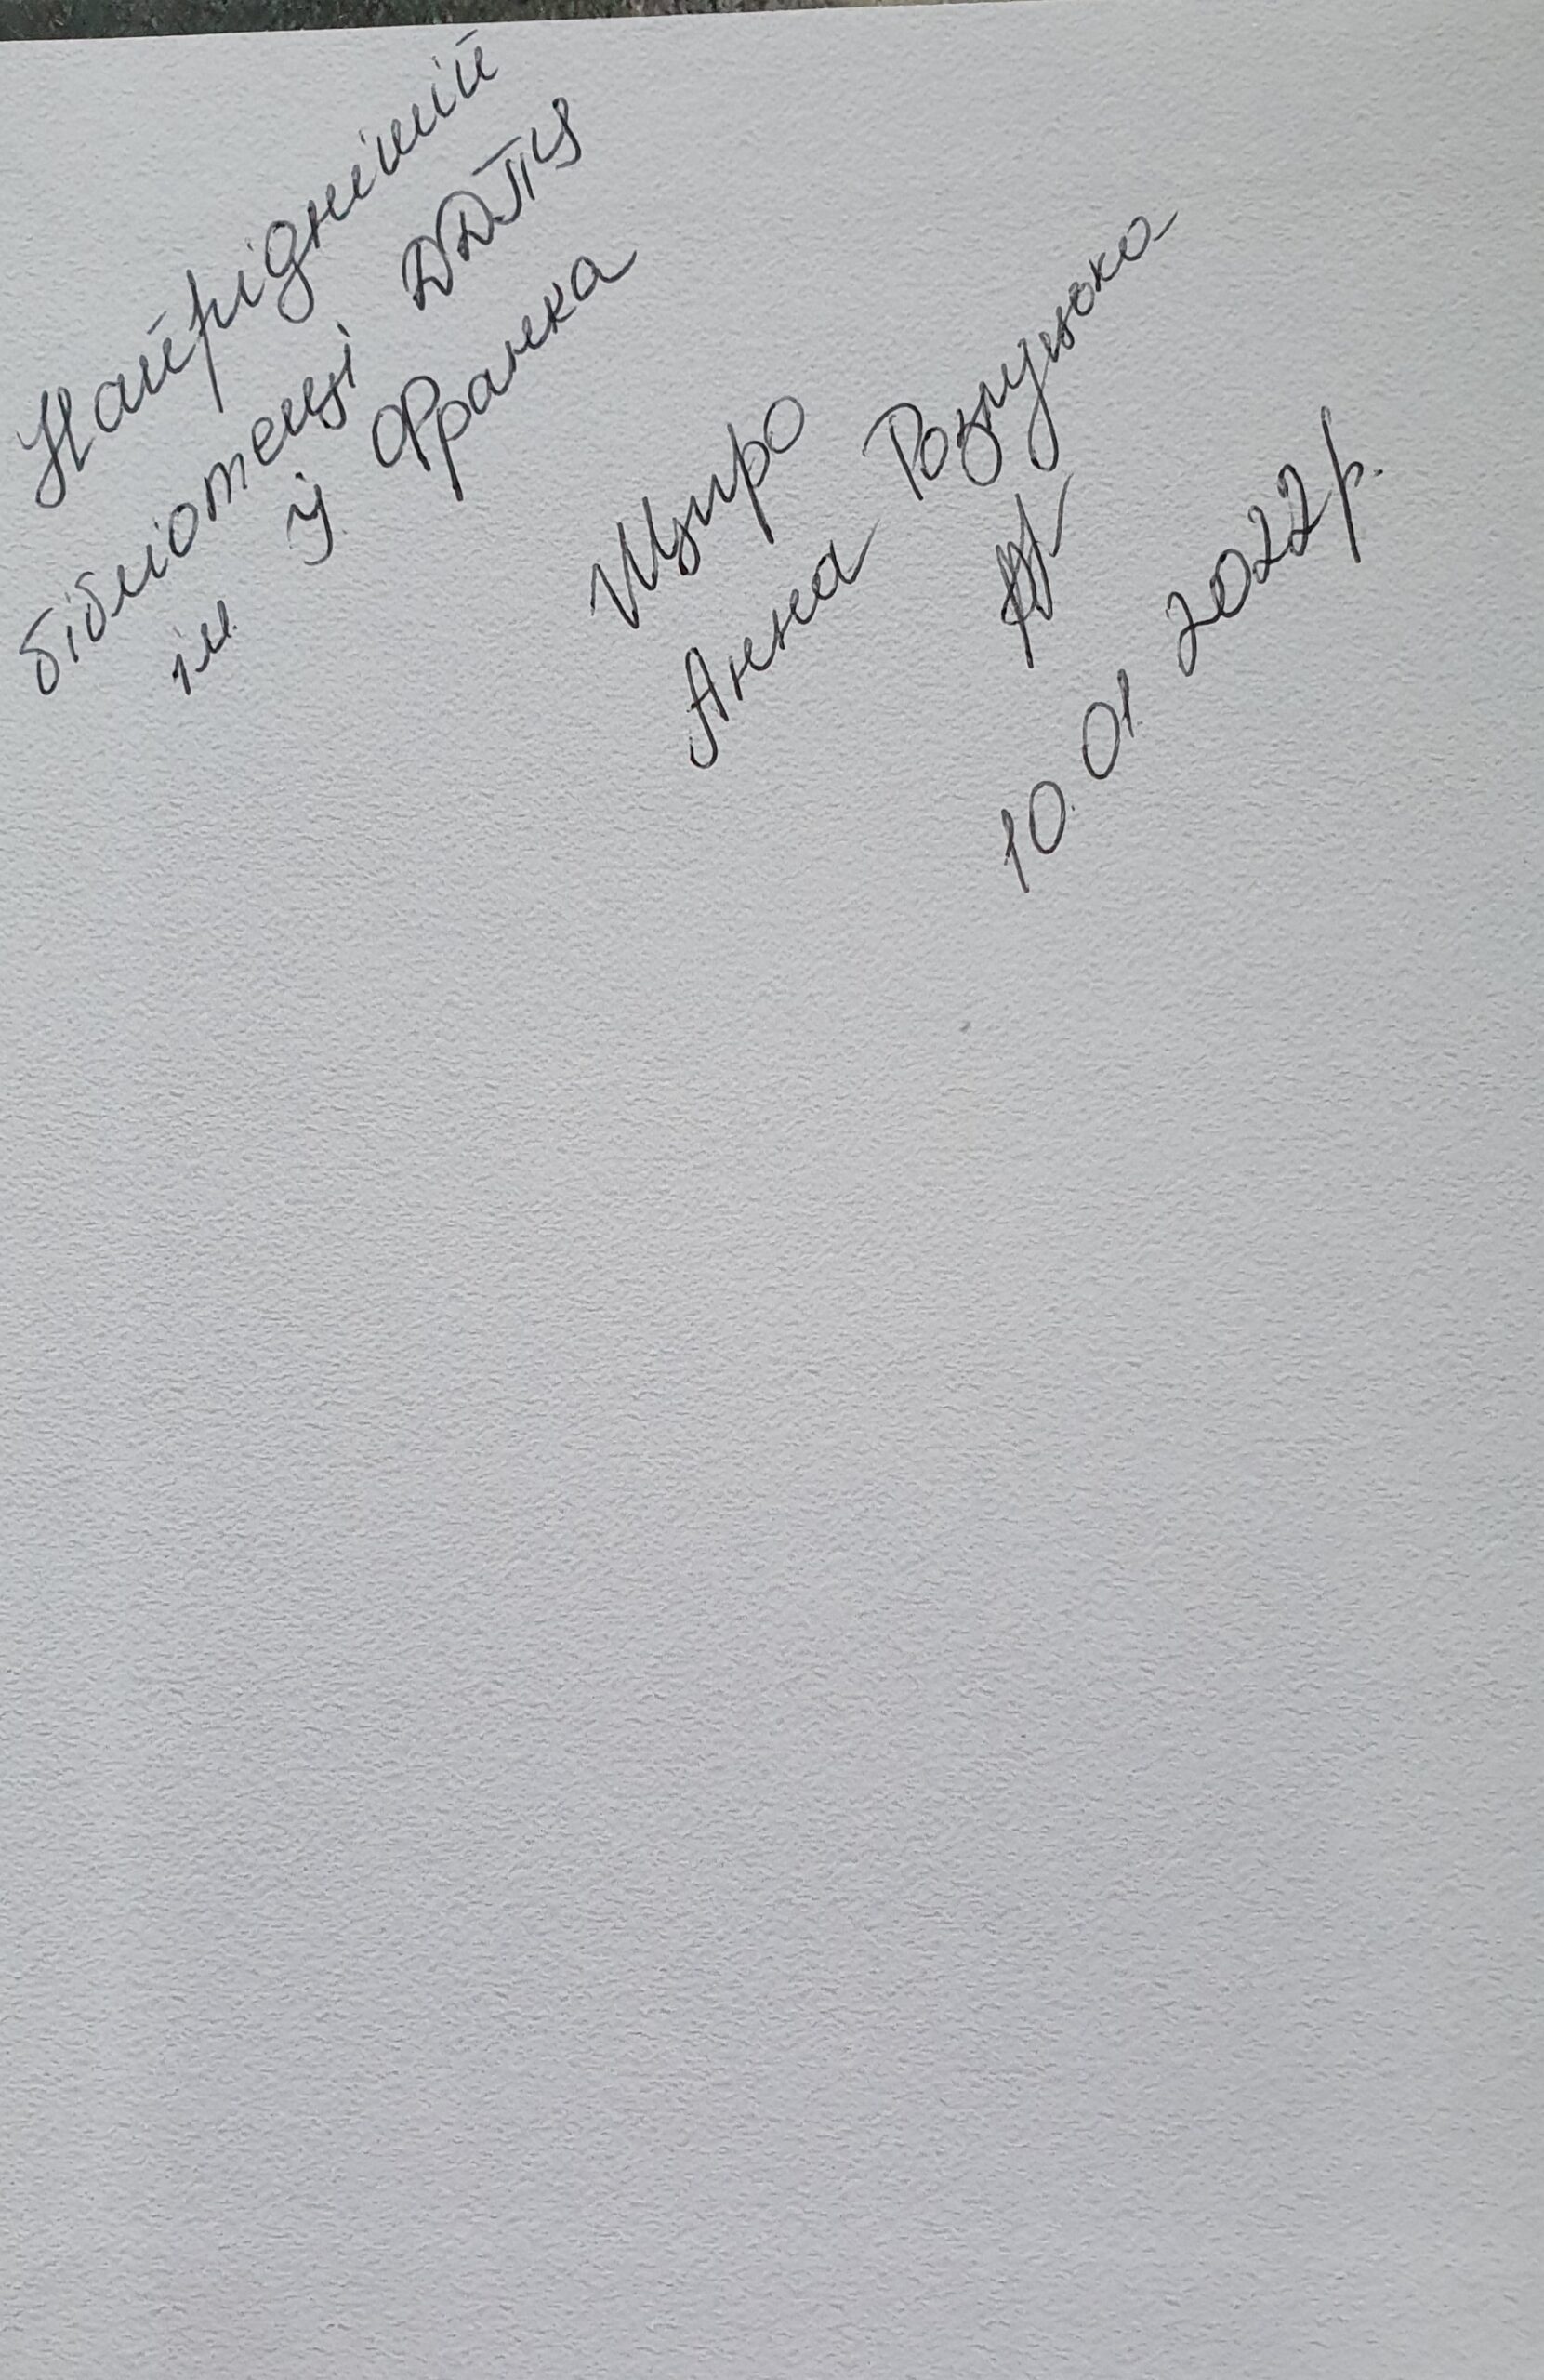 Найріднішій
бібліотеці ДДПУ
ім. І. Франка
Щиро
Анна Розлуцька
10.01.2022р.